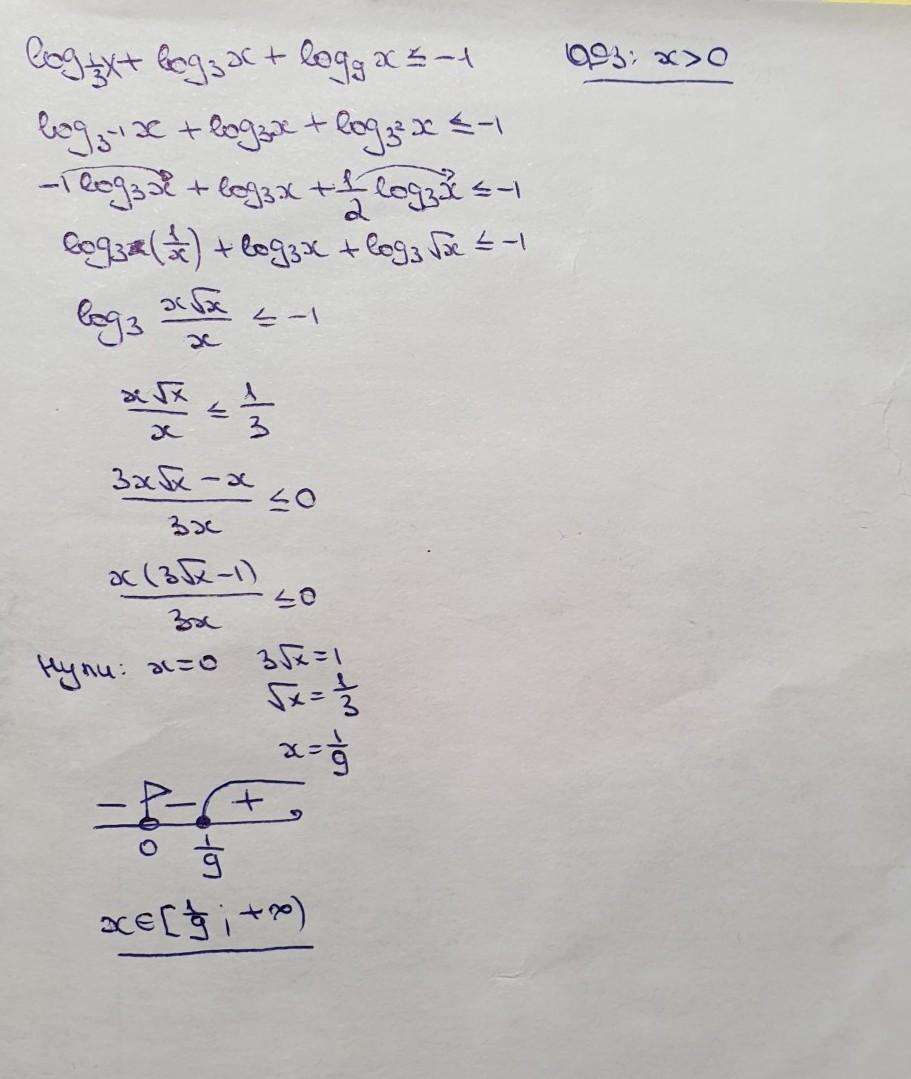 log_{1/3} x + log₃x + log₉ x ≤ -1 ОДЗ: x>0
log_{3⁻¹} x + log₃x + log_{3²} x ≤ -1
-1 log₃x + log₃x + 1/2 log₃x ≤ -1
log₃(1/x) + log₃x + log₃√x ≤ -1
log₃ x√x/x ≤ -1
x√x/x ≤ 1/3
(3x√x - x)/3x ≤ 0
x(3√x - 1)/3x ≤ 0
Нули: x=0 3√x=1
√x = 1/3
x = 1/9
- - +
0 1/9
x∈[1/9; +∞)